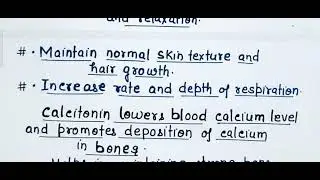 and relaxation.
# • Maintain normal skin texture and
hair growth.
# • Increase rate and depth of respiration.
Calcitonin lowers blood calcium level
and promotes deposition of calcium
in bones